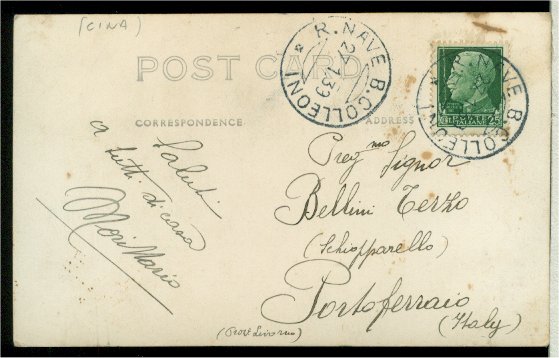 (CINA)
POST CARD
* R. NAVE B. COLLEONI
27.1.39
* R. NAVE B. COLLEONI
CORRESPONDENCE
ADDRESS
Saluti
a tutti di casa
Mori Mario
Preg.mo Signor
Bellini Terzo
(Schiopparello)
Portoferraio
(Prov Livorno)
(Italy)